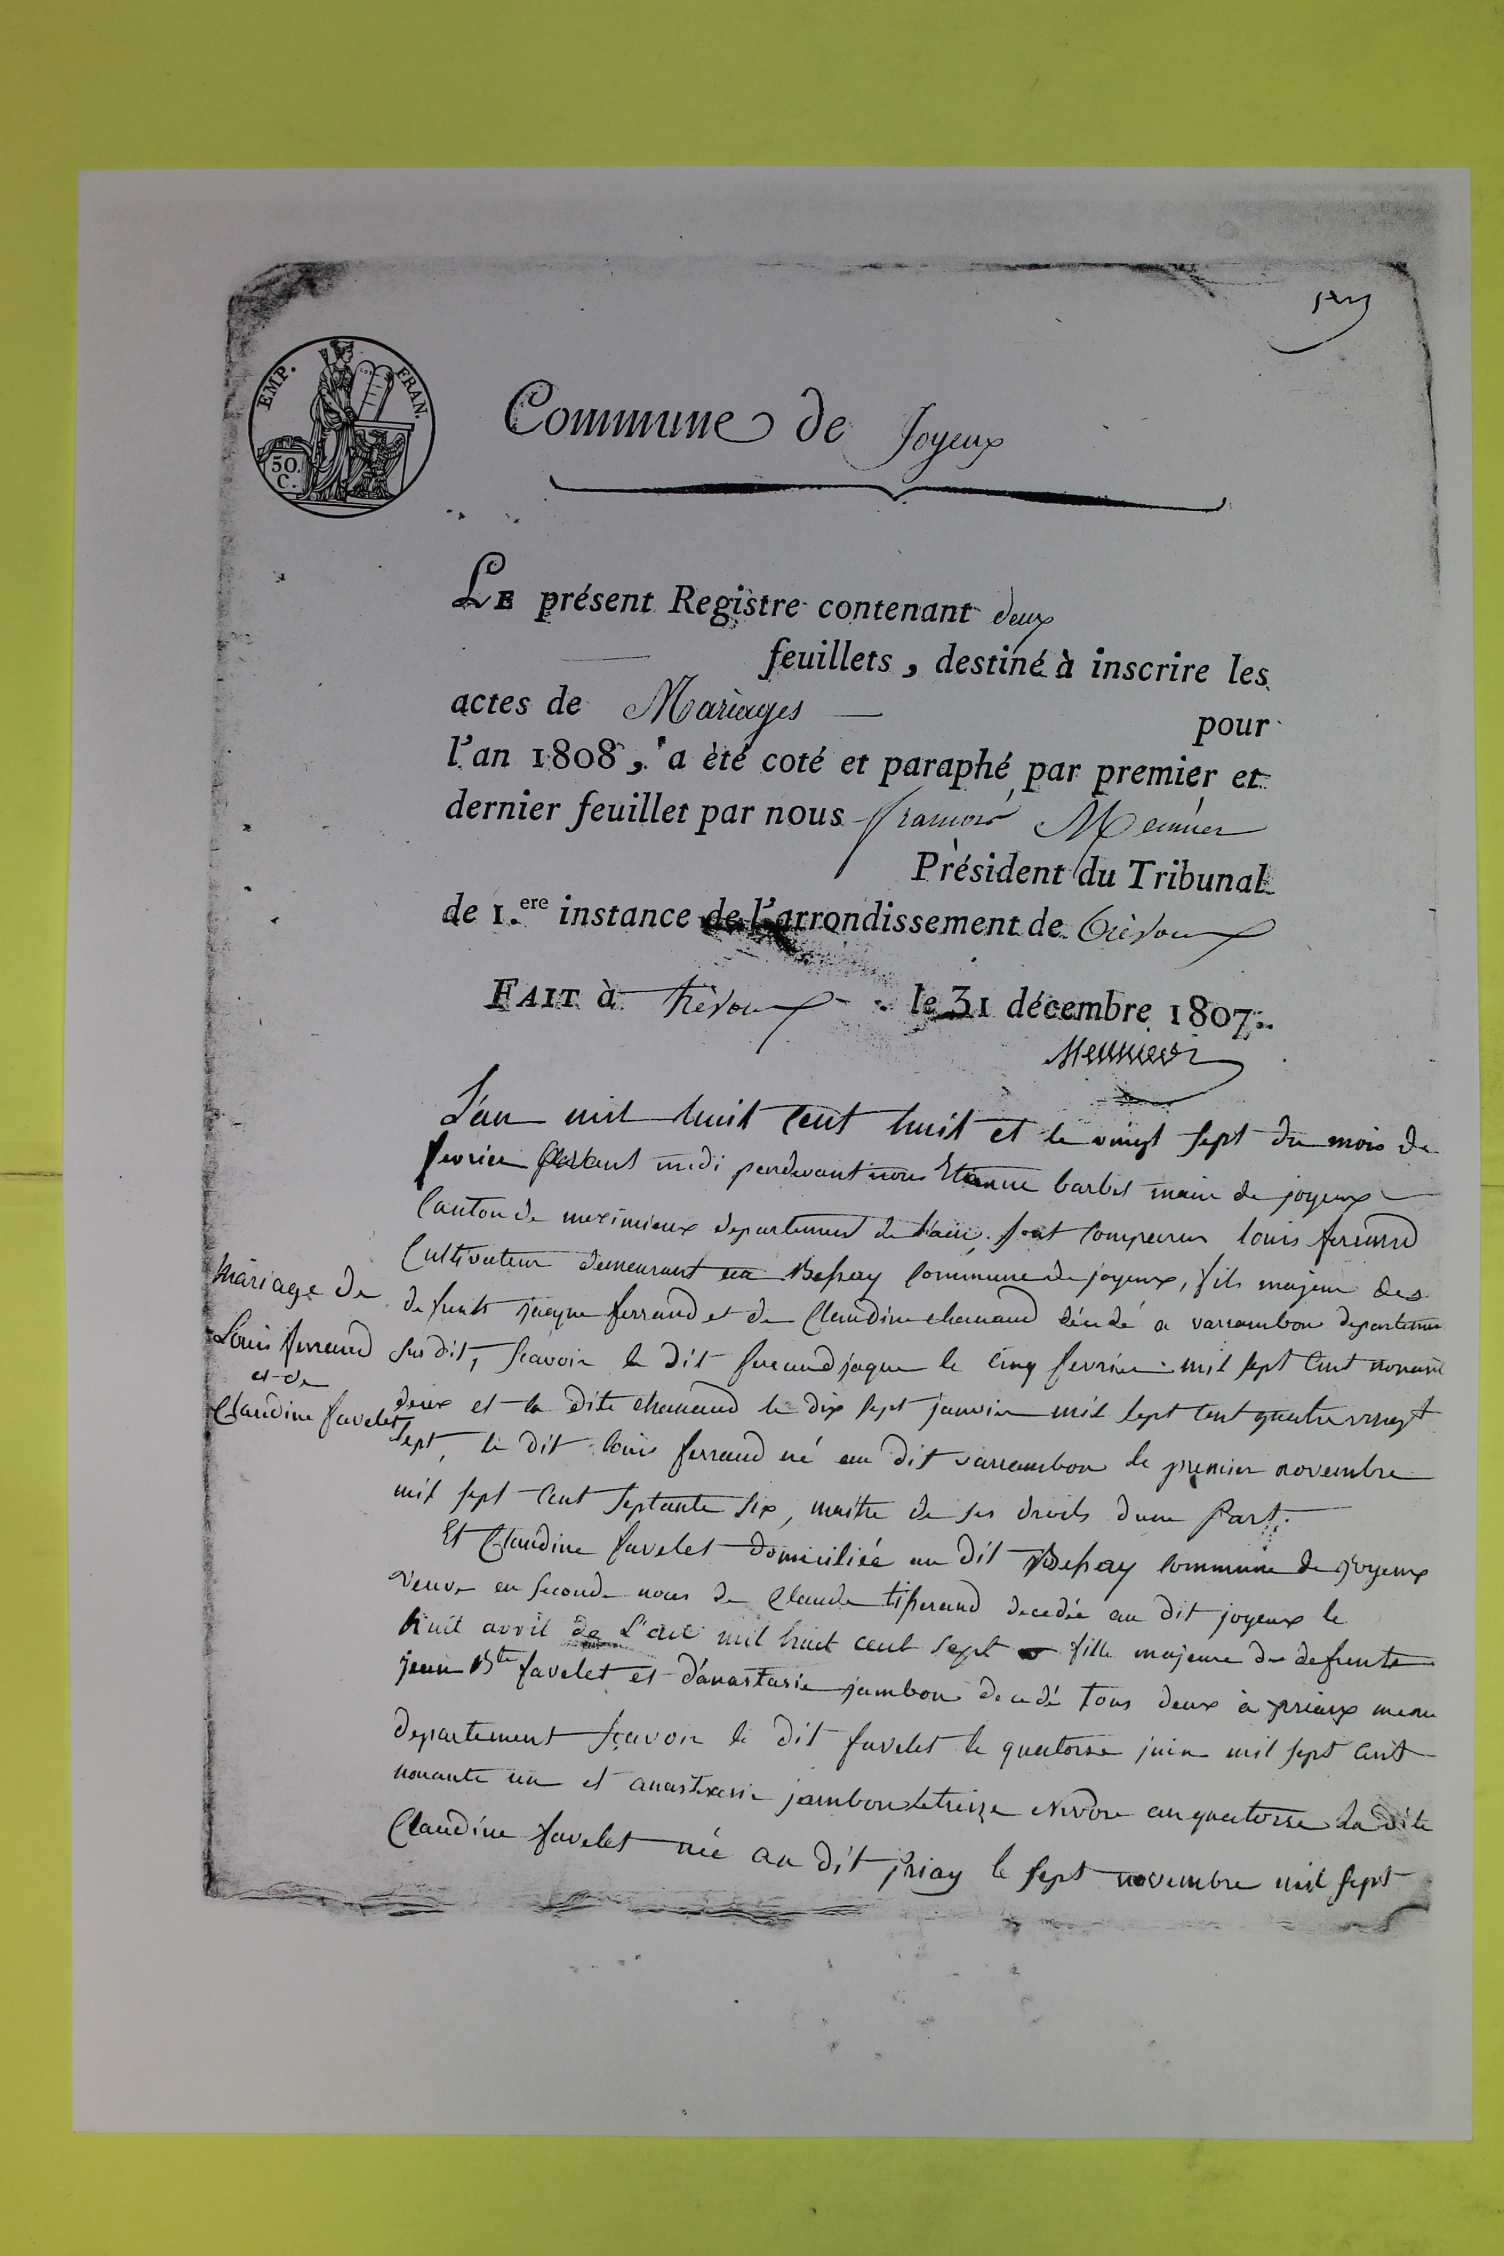 EMP. FRAN.
50.
C.
Commune de Joyeux
LE présent Registre contenant deux
feuillets, destiné à inscrire les
actes de Mariages pour
l'an 1808, a èté coté et paraphé par premier et
dernier feuillet par nous françois Meunier
Président du Tribunal
de 1.ere instance de l'arrondissement de Trèvoux
FAIT à Trèvoux le 31 décembre 1807.
Meunier
L'an mil huit cent huit et le vingt sept du mois de
fevrier avant midi pardevant nous Etienne barbet maire de joyeux
Canton de meximieux departement de l'ain, sont comparus louis ferrand
Cultivateur demeurant au Bessay commune de joyeux, fils majeur des
defunts jaque ferrand et de Claudine chanaud décédé a varrambon departement
mariage de
Louis ferrand
et de
Claudine favelet
sus dit, scavoir le dit ferrand jaque le cinq fevrier mil sept cent nonante
deux et la dite chanaud le dix sept janvier mil sept cent quatre vingt
sept, le dit louis ferrand né au dit varrambon le premier novembre
mil sept cent septante six, maitre de ses droits dune part.
Et Claudine favelet domiciliée au dit Bessay commune de joyeux
veuve en seconde noces de Claude tisserand decedée au dit joyeux le
huit avril de L'an mil huit cent sept fille majeure de defunts
jean Bte favelet et d'anastasie jambon decedé tous deux à priay meme
departement sçavoir le dit favelet le quatorse juin mil sept cent
nonante un et anastasie jambon le treize nivose an quatorse la dite
Claudine favelet née au dit priay le sept novembre mil sept